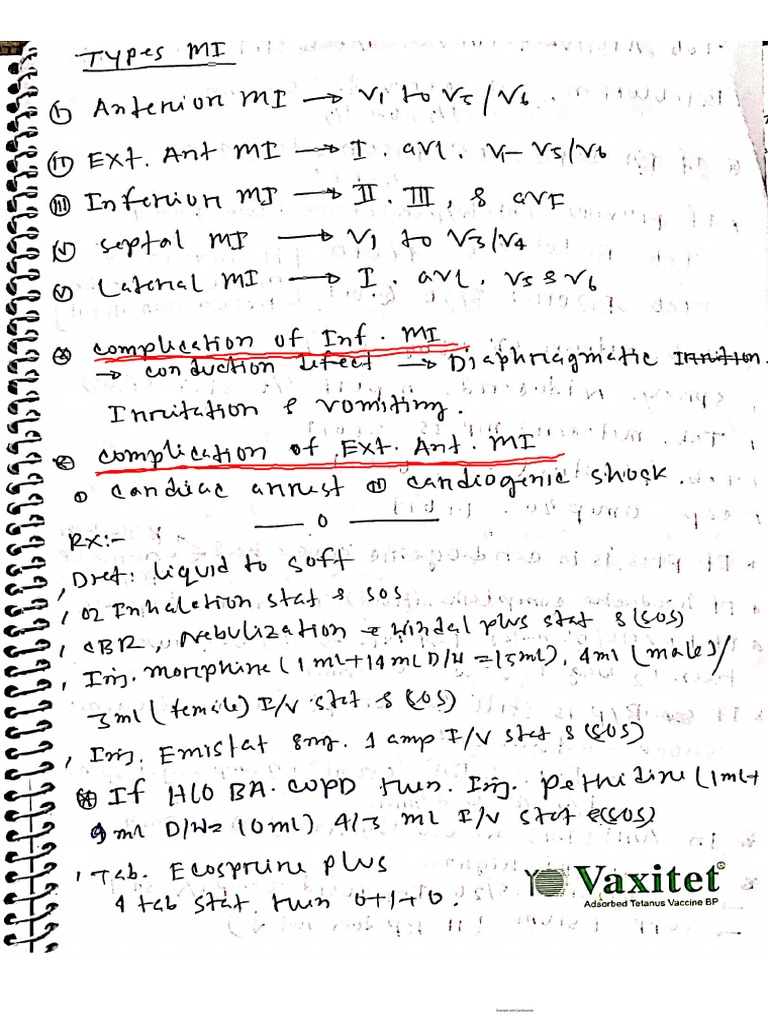 Types MI
(i) Anterior MI → V1 to V5/V6.
(ii) Ext. Ant MI → I. avl. V1- V5/V6
(iii) Inferior MI → II. III, & aVF
(iv) septal MI → V1 to V3/V4
(v) Lateral MI → I. avl. V5 & V6
complication of Inf. MI
→ conduction defect → Diaphragmatic
Irritation & vomiting.
complication of Ext. Ant. MI
(i) cardiac arrest (ii) cardiogenic shock.
— 0 —
Rx:-
Diet: liquid to soft
O2 Inhaletion stat & sos
CBR, Nebulization windel plus stat & (sos)
Inj. morphine (1 ml+14 ml D/W = 15ml). 4ml (male)/
3ml (female) I/V stat & (sos)
Inj. Emistat 8mg. 1 amp I/V stat & (sos)
If H/O BA. COPD then. Inj. pethidine (1ml+
9 ml D/W= 10ml) 4/3 ml I/V stat & (sos)
Tab. Ecosprine plus
4 tab stat then 0+1+0.
Vaxitet®
Adsorbed Tetanus Vaccine BP
Scanned with CamScanner